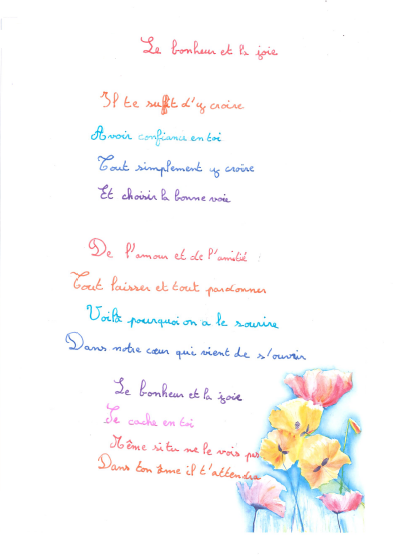 Le bonheur et la joie
Il te suffit d'y croire
Avoir confiance en toi
Tout simplement y croire
Et choisir la bonne voie
De l'amour et de l'amitié :
Tout laisser et tout pardonner
Voilà pourquoi on a le sourire
Dans notre cœur qui vient de s'ouvrir
Le bonheur et la joie
Se cache en toi
Même si tu ne le vois pas
Dans ton âme il t'attendra